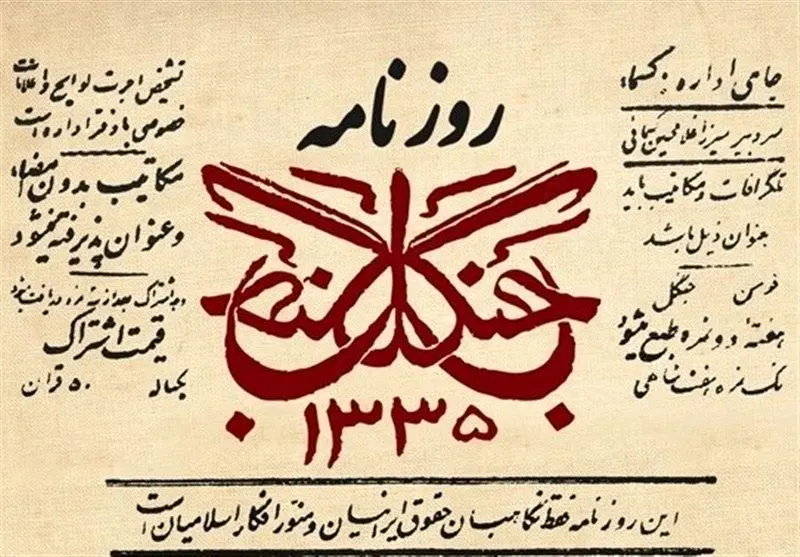 جای اداره : کسماء
سردبیر میرزا غلامحسین کسمائی
تلگرافات و مکاتیب باید
بعنوان ذیل باشد
فومن جنگل
هفته دو نمره طبع میشود
تک نمره هفت شاهی
روزنامه
جنگل
۱۳۳۵
تشخیص اجرت لوایح و اعلانات
خصوصی با دفتر اداره است
مکاتیب بدون امضاء
و عنوان پذیرفته نمیشود
وجه اشتراک بعد از سه نمره دریافت میشود
قیمت اشتراک
یکساله ۵۰ قران
این روزنامه فقط نگاهبان حقوق ایرانیان و منور افکار اسلامیان است